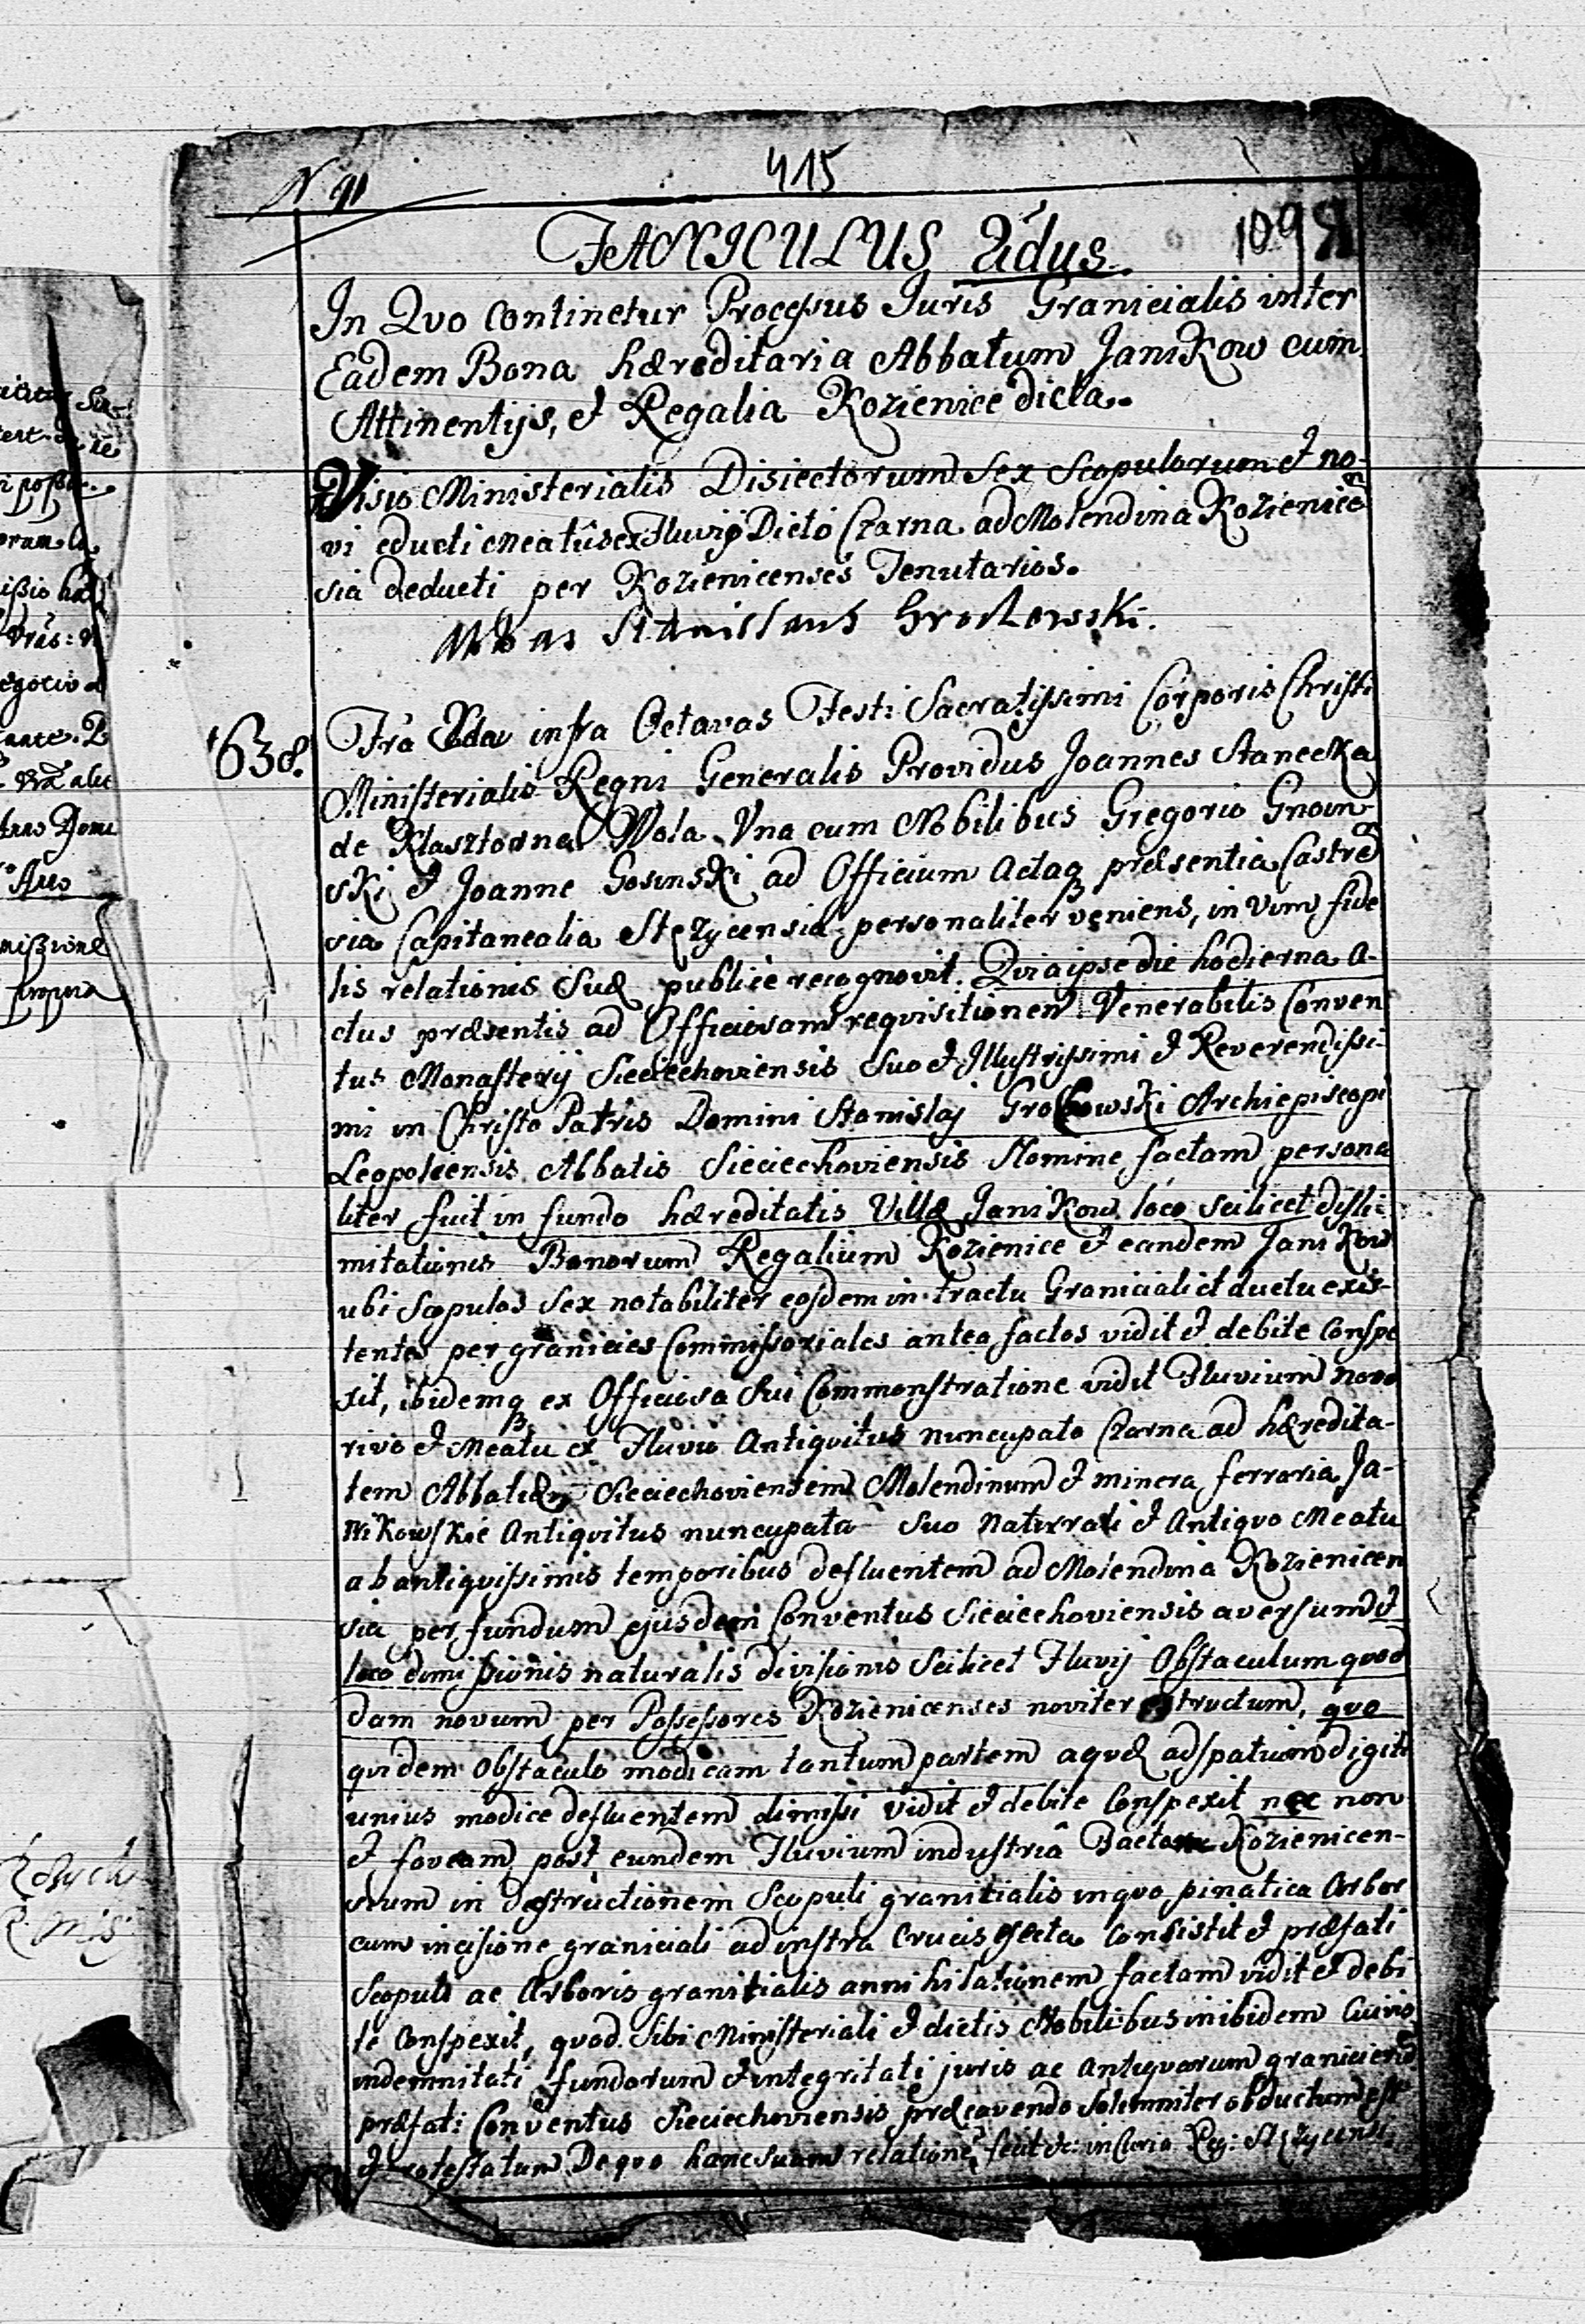 415
N 91
109
FASCICULUS 2dus.
In Qvo continetur Processus Juris Granicialis inter
Eadem Bona hæreditaria Abbatum Janikow cum
Attinentijs, et Regalia Kozienice dicta.
Visio Ministerialis Disiectorum Sex Scopulorum et no-
vi educti Meatûs ex Fluvij Dicto Czarna ad Molendina Kozienicen
sia deducti per Kozienicenses Tenutarios.
Abbas Stanislaus Grochowski.
1638.
Fra 2da infra Octavas Festi Sacratissimi Corporis Christi
Ministerialis Regni Generalis Providus Joannes Staneczka
de Klasztorna Wola Una cum Nobilibus Gregorio Gnoin-
ski et Joanne Gosinski ad Officium Actaq præsentia Castren
sia Capitanealia Stezycensia personaliter veniens, in Vim fide
lis relationis suæ publicè recognovit. Qvia ipse die hodierna a-
ctus præsentis ad Officiosam requisitionem Venerabilis Conven
tus Monasterij Sieciechoviensis Suo et Illustrissimi et Reverendissi-
mi in Christo Patris Domini Stanislaj Grochowski Archiepiscopi
Leopoliensis Abbatis Sieciechoviensis Nomine factam persona
liter fuit in fundo hæreditatis Villæ Janikow loco scilicet disli-
mitationis Bonorum Regalium Kozienice et eandem Janikow
ubi Scopulos Sex notabiliter eosdem in tractu Graniciali et ductu exis-
tentes per granicies Commissoriales antea factos vidit et debite Conspe
xit, ibidemq ex Officiosa Sui Commonstratione vidit Fluvium novo
rivo et Meatu ex Fluvio Antiqvitus nuncupato Czarna ad hæredita-
tem Abbatum Sieciechoviensem Molendinum et minera ferraria Ja-
nikowskie Antiqvitus nuncupata Suo Naturali et Antiqvo Meatu
ab antiqvissimis temporibus defluentem ad Molendina Kozienicen
sia per fundum ejusdem Conventus Sieciechoviensis aversum et
loco dimissionis naturalis divisionis Scilicet Fluvij Obstaculum quod
dam novum per Possessores Kozienicenses noviter structum, qvo
qvidem Obstaculo modicam tantum partem aqvæ ad spatium digiti
unius modice defluentem dimissi vidit et debite Conspexit nec non
et foveam post eundem Fluvium industriâ Kozienicen-
sium in destructionem Scopuli granicialis in qvo pinatica Arbor
cum incisione graniciali ad instra Crucis Consistit et præfati
Scopuli ac Arboris granicialis annihilationem factam vidit et debi
te Conspexit, quod Sibi Ministeriali et dictis Nobilibus inibidem
indemnitati fundorum et integritati juris ac antiqvarum granicierum
præfati Conventus Sieciechoviensis præcavendo Solemniter obductum est
et protestatum De qvo hanc suam relationem fecit &c: in Curia Reg: Stezycensi